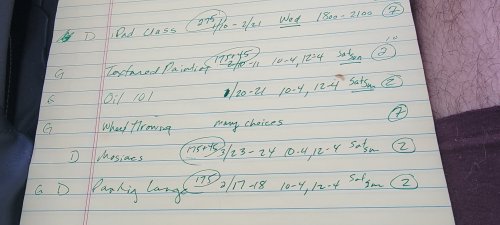 D iPad Class 275 1/10 - 2/21 Wed 1800 - 2100 7
G Textured Painting 175+45 2/10-11 10-4, 12-4 Sat Sun 2
G Oil 101 1/20-21 10-4, 12-4 Sat Sun 2
G Wheel Throwing many choices 7
D Mosiacs 175+45 3/23-24 10-4, 12-4 Sat Sun 2
G D Large 175 2/17-18 10-4, 12-4 Sat Sun 2